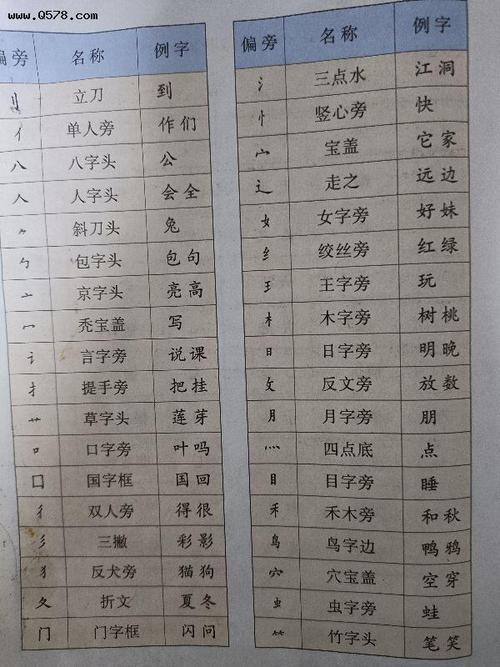 www.0578.com
偏旁 名称 例字
刂 立刀 到
亻 单人旁 作们
八 八字头 公
人 人字头 会全
⺈ 斜刀头 兔
勹 包字头 包句
亠 京字头 亮高
冖 秃宝盖 写
讠 言字旁 说课
扌 提手旁 把挂
艹 草字头 莲芽
口 口字旁 叶吗
囗 国字框 国回
彳 双人旁 得很
彡 三撇 彩影
犭 反犬旁 猫狗
夂 折文 夏冬
门 门字框 闪问
偏旁 名称 例字
氵 三点水 江洞
忄 竖心旁 快
宀 宝盖 它家
辶 走之 远边
女 女字旁 好妹
纟 绞丝旁 红绿
王 王字旁 玩
木 木字旁 树桃
日 日字旁 明晚
攵 反文旁 放数
月 月字旁 朋
灬 四点底 点
目 目字旁 睡
禾 禾木旁 和秋
鸟 鸟字边 鸭鸦
穴 穴宝盖 空穿
虫 虫字旁 蛙
⺮ 竹字头 笔笑